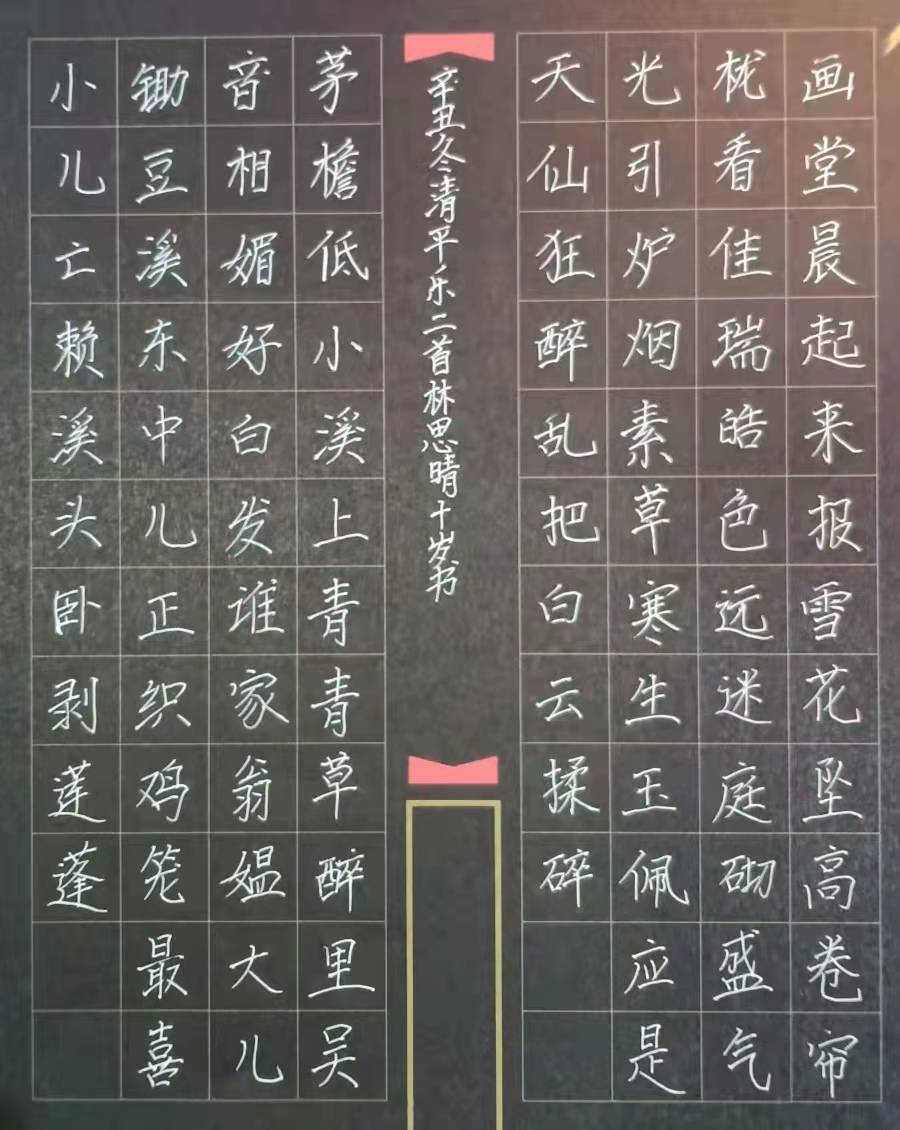 画堂晨起来报雪花坠高卷帘
栊看佳瑞皓色远迷庭砌盛气
光引炉烟素草寒生玉佩应是
天仙狂醉乱把白云揉碎
辛丑冬清平乐二首林思晴十岁书
茅檐低小溪上青青草醉里吴
音相媚好白发谁家翁媪大儿
锄豆溪东中儿正织鸡笼最喜
小儿亡赖溪头卧剥莲蓬